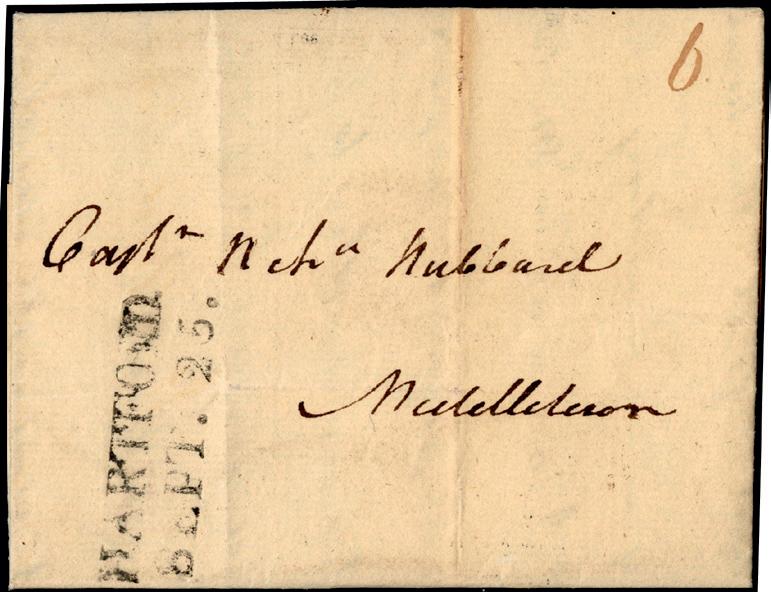 6
Captn Nehh Hubbard
Middletown
HARTFORD
SEPT. 25.